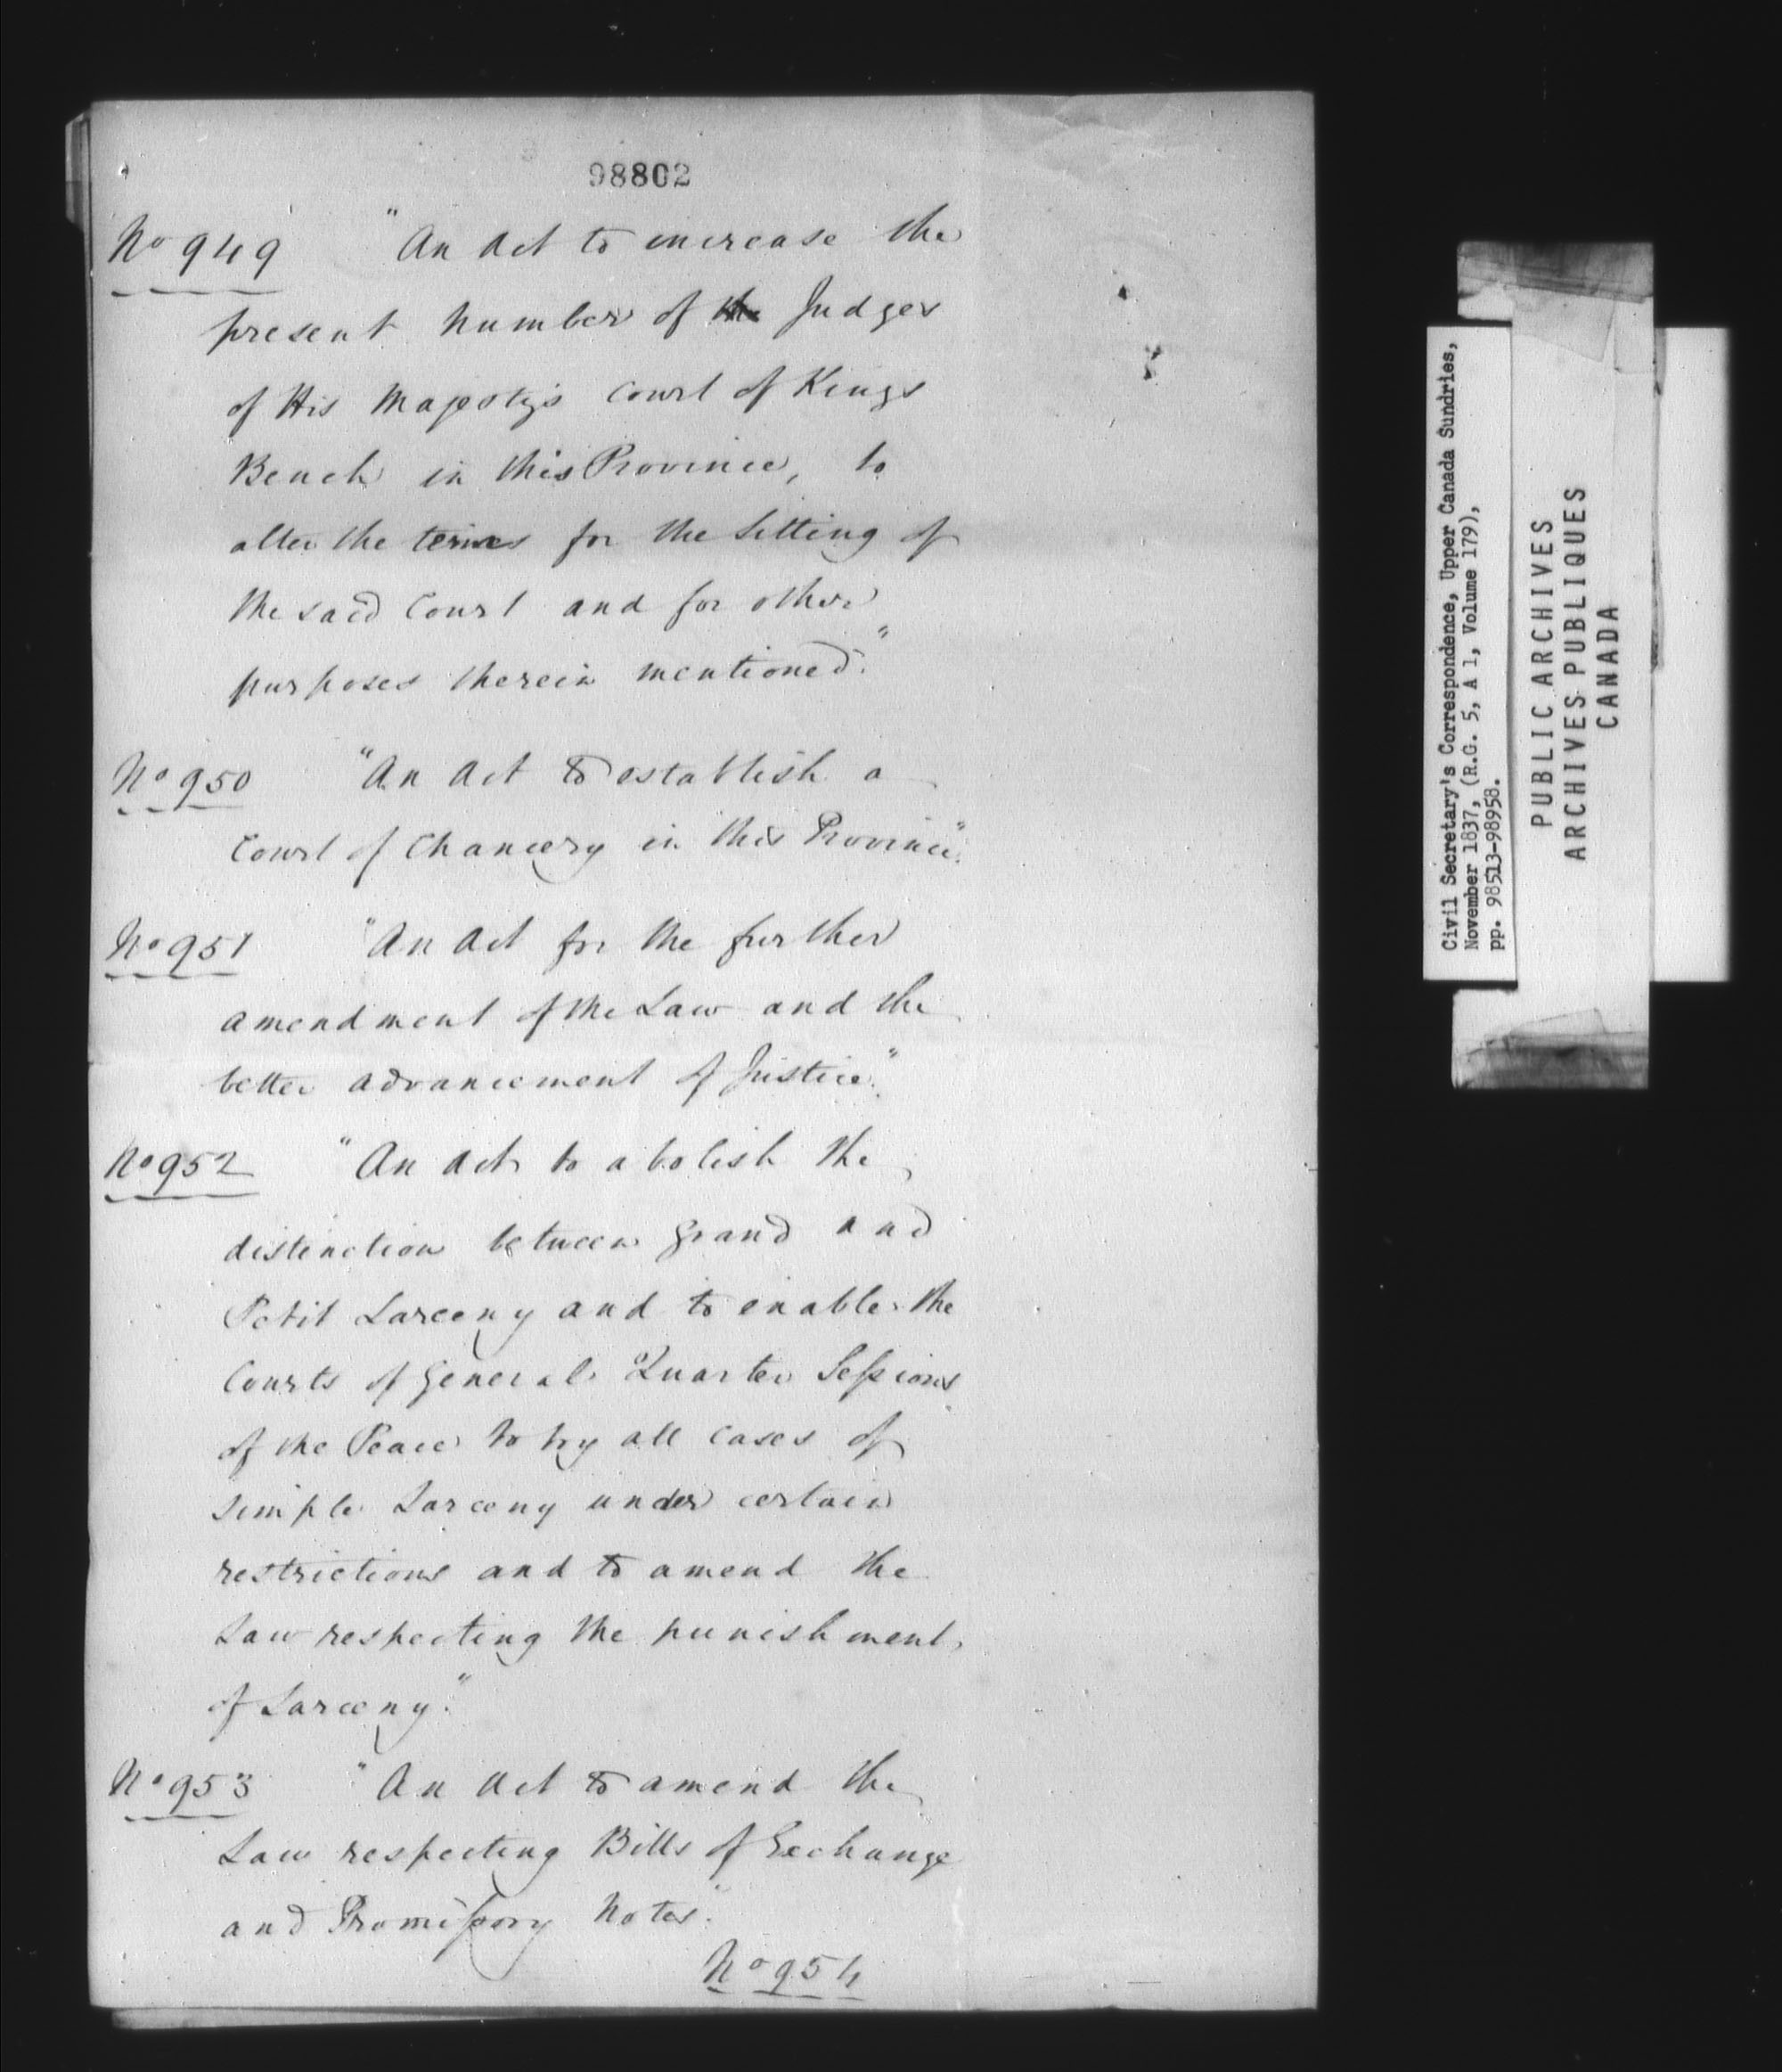 98802
No 949 "An Act to increase the
present number of the Judges
of His Majesty's Court of Kings
Bench in this Province, to
alter the terms for the Sitting of
the said Court and for other
purposes therein mentioned."
No 950 "An Act to establish a
Court of Chancery in this Province".
No 951 "An Act for the further
amendment of the Law and the
better advancement of Justice".
No 952 "An Act to abolish the
distinction between Grand and
Petit Larceny and to enable the
Courts of General Quarter Sessions
of the Peace to try all cases of
simple Larceny under certain
restrictions and to amend the
Law respecting the punishment
of Larceny."
No 953 "An Act to amend the
Law respecting Bills of Exchange
and Promissory Notes".
No 954
Civil Secretary's Correspondence, Upper Canada Sundries,
November 1837, (R.G. 5, A 1, Volume 179),
pp. 98513-98958.
PUBLIC ARCHIVES
ARCHIVES PUBLIQUES
CANADA